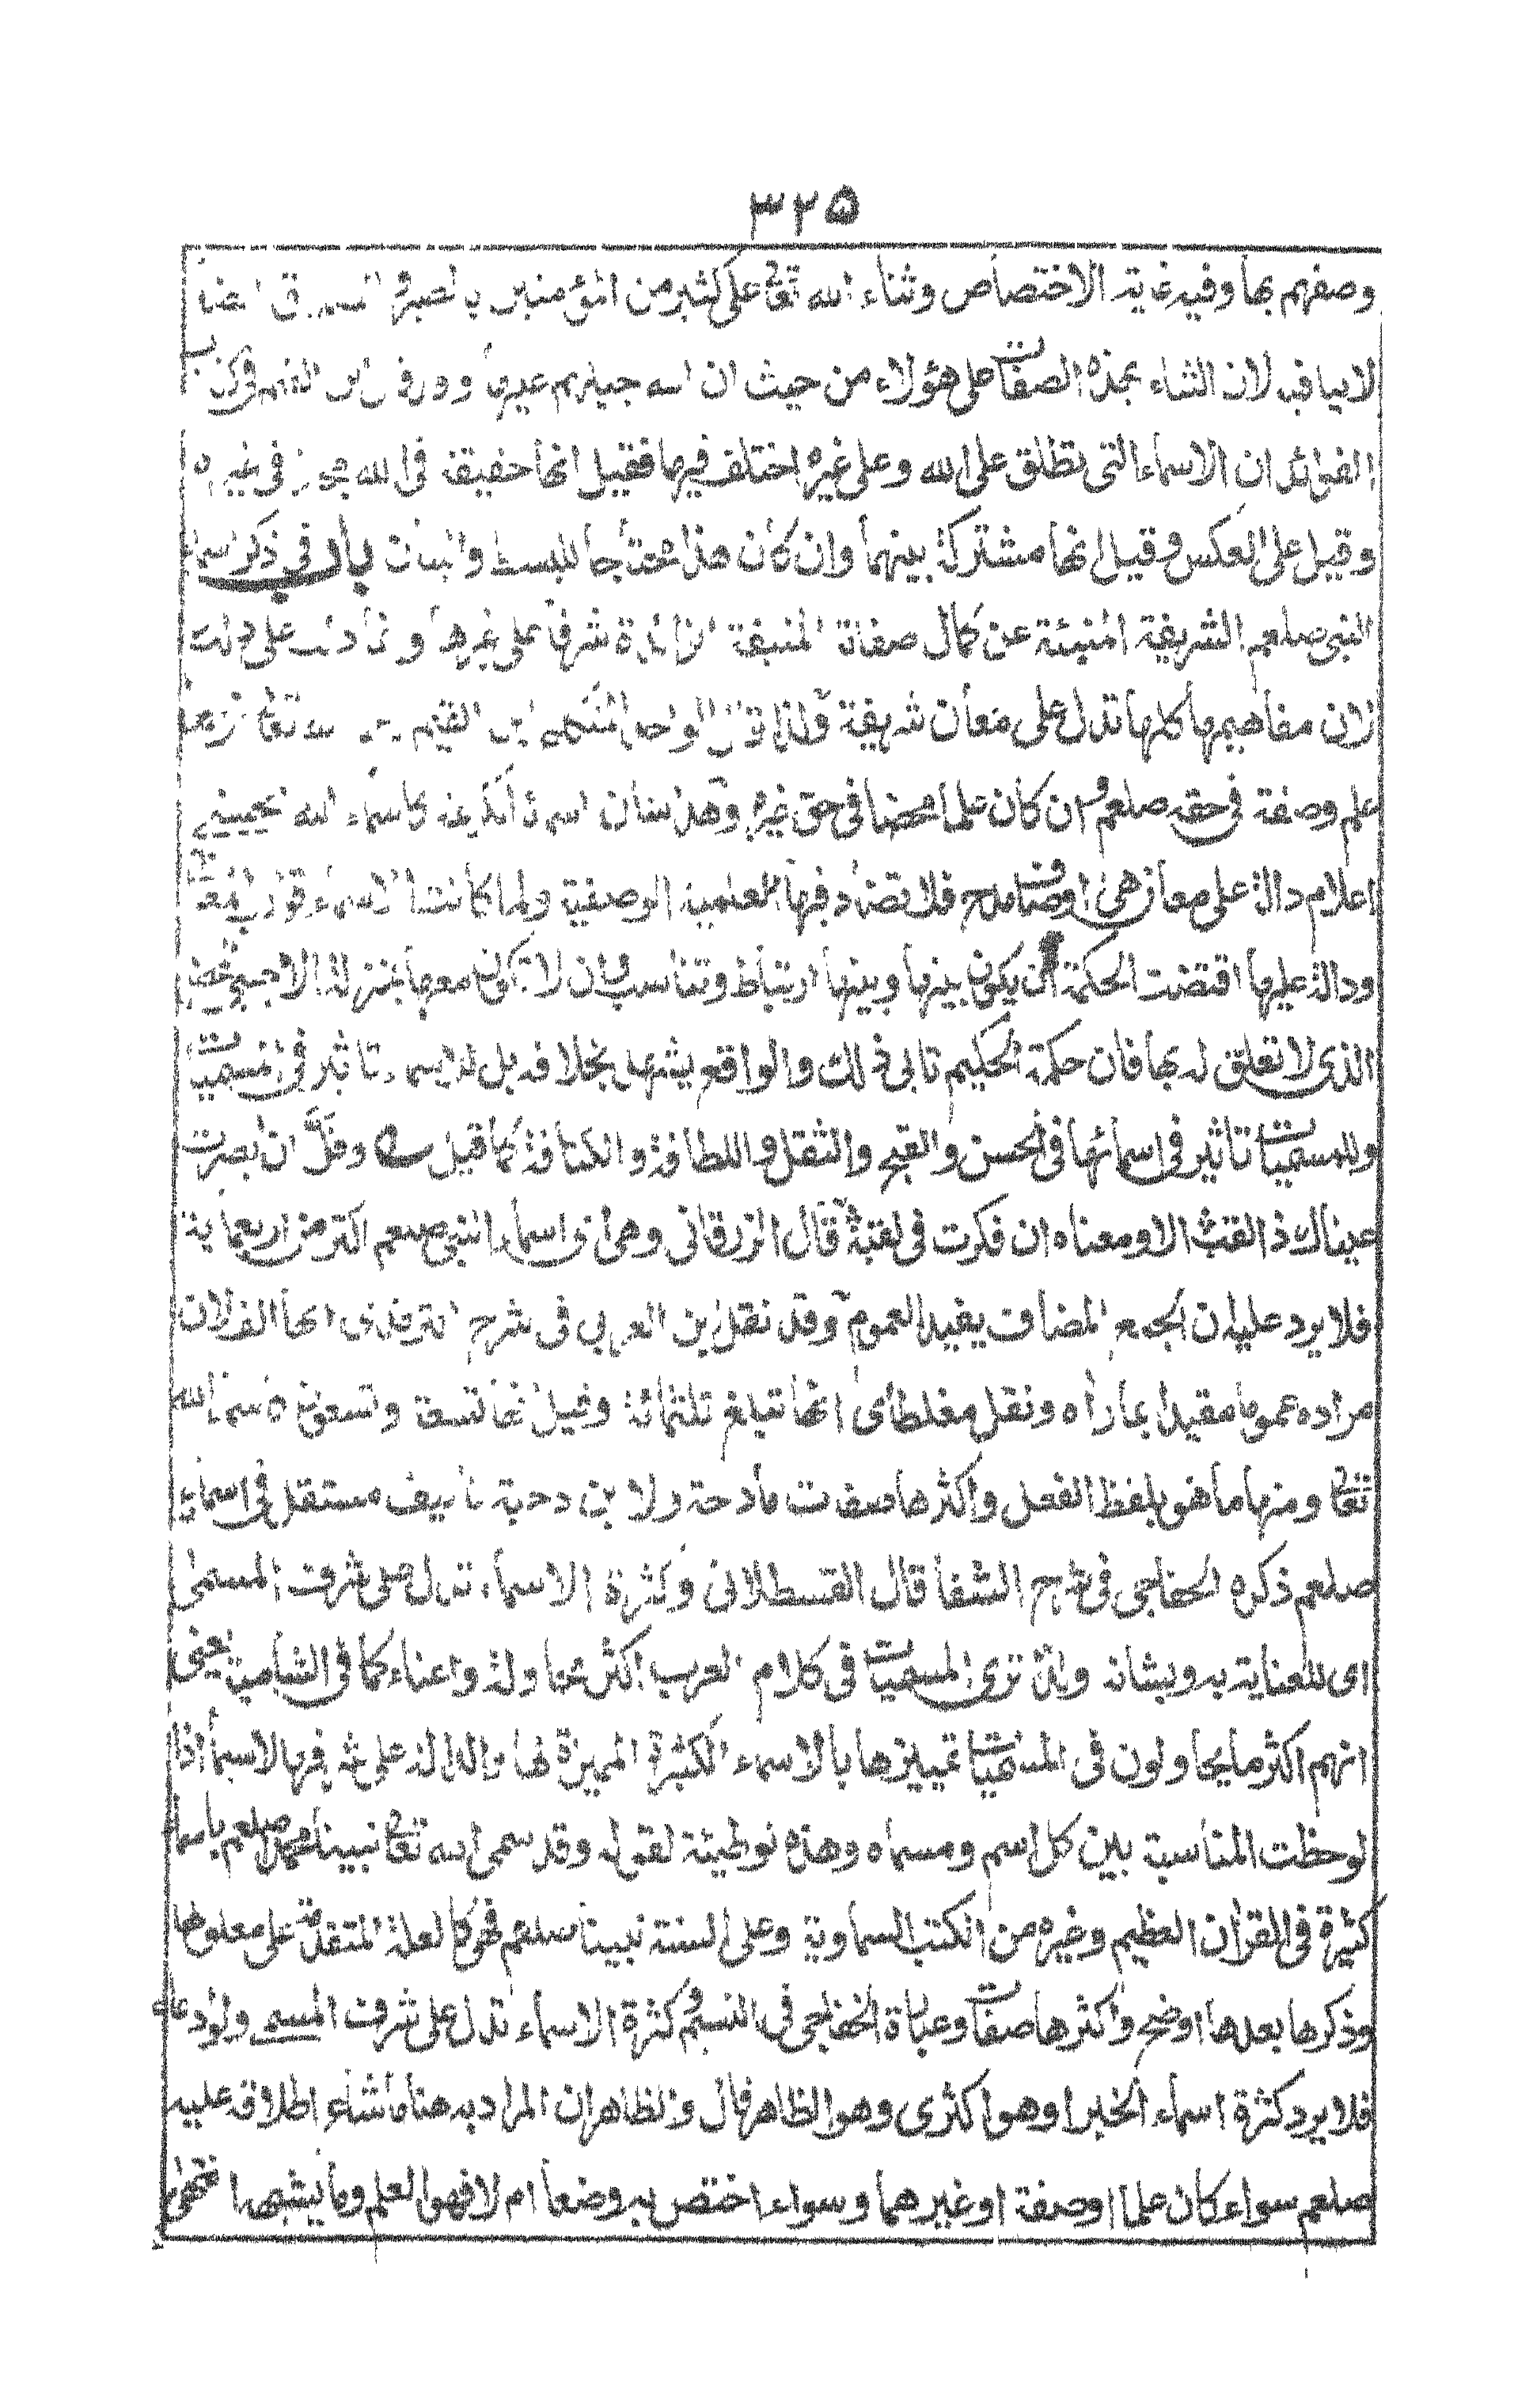 ٣٢٥
وصفهم بها وفيه غاية الاختصاص وثناء الله تعالى على كثير من المؤمنين بالصبر و
لا ينافيه لان الثناء بهذه الصفات على هؤلاء من حيث ان الله جبلهم عليها و
الفوائد ان الاسماء التى تطلق على الله وعلى غيره اختلف فيها فقيل انها حقيقة فى الله مجاز فى غيره
وقيل على العكس وقيل انها مشتركة بينهما وان كان هذا محتاجا للبسط والبيان باب فى ذكر اسماء
النبى صلعم الشريفة المنبئة عن كمال صفاته المنيفة الزائدة شرفا على غيرها و دلت على ذلك
لان مفاهيمها كلها تدل على معان شريفة ولذا قال الواحد المتكلم ابن القيم الله تعالى
علم وصفة فى حقه صلعم وان كان علما محضا فى حق غيره وهذا شان اسمائه كاسماء الله
اعلام دالة على معان هى اوصاف مدح فلا تضاد فيها العلمية الوصفية ولما كانت الاسماء قوالب للمعانى
ودالة عليها اقتضت الحكمة ان يكون بينها وبينها ارتباط وتناسب وان لا تكون معها بمنزلة الاجنبى المحض
الذى لا تعلق له بها فان حكمة الحكيم تابى ذلك والواقع يشهد بخلافه بل للاسماء تاثير فى المسميات
وللمسميات تاثير فى اسمائها فى الحسن والقبح والثقل واللطافة والكثافة كما قيل وقل ان ابصرت
عيناك ذا لقب الا ومعناه ان فكرت فى لقبه قال الزرقانى وهى اى اسماء النبى صلعم اكثر من اربعماية
فلا يرد عليه ان الجمع المضاف يفيد العموم وقد نقل ابن العربى فى شرح الترمذى انها الف لان
مراده عموما مقيدا بما رآه ونقل مغلطاى انها تبلغ ثلثمائة وقيل انها تسعة وتسعون كاسماء الله
تعالى ومنها ما هو بلفظ الفعل واكثرها صفات مادحة ولابن دحية تاليف مستقل فى اسمائه
صلعم ذكره الخفاجى فى شرح الشفا قال القسطلانى وكثرة الاسماء تدل على شرف المسمى
اى للعناية به وبشانه ولذا ترى المسميات فى كلام العرب اكثر محاولة واعتناء كما فى الشامية يعنى
انهم اكثر ما يحاولون فى المسميات تمييزها بالاسماء الكثيرة المميزة لها والدالة على شرفها لا سيما اذا
لوحظت المناسبة بين كل اسم ومسماه وهذه توطيئة لقوله وقد سمى الله تعالى نبينا محمدا صلعم باسماء
كثيرة فى القرآن العظيم وغيره من الكتب السماوية وعلى السنة نبينا صلعم فهو كالعلة المتقدمة على معلولها
وذكرها بعدها اوضح واكثرها صفات وعبارة الخفاجى فى النسيم كثرة الاسماء تدل على شرف المسمى ولو ادعاء
فلا يرد كثرة اسماء الخمر او هو اكثرى وهو الظاهر قال والظاهر ان المراد به هنا ما شاع اطلاقه عليه
صلعم سواء كان علما او صفة او غيرهما وسواء اختص به وضعا ام لا فهو العلم وما يشبهه انتهى